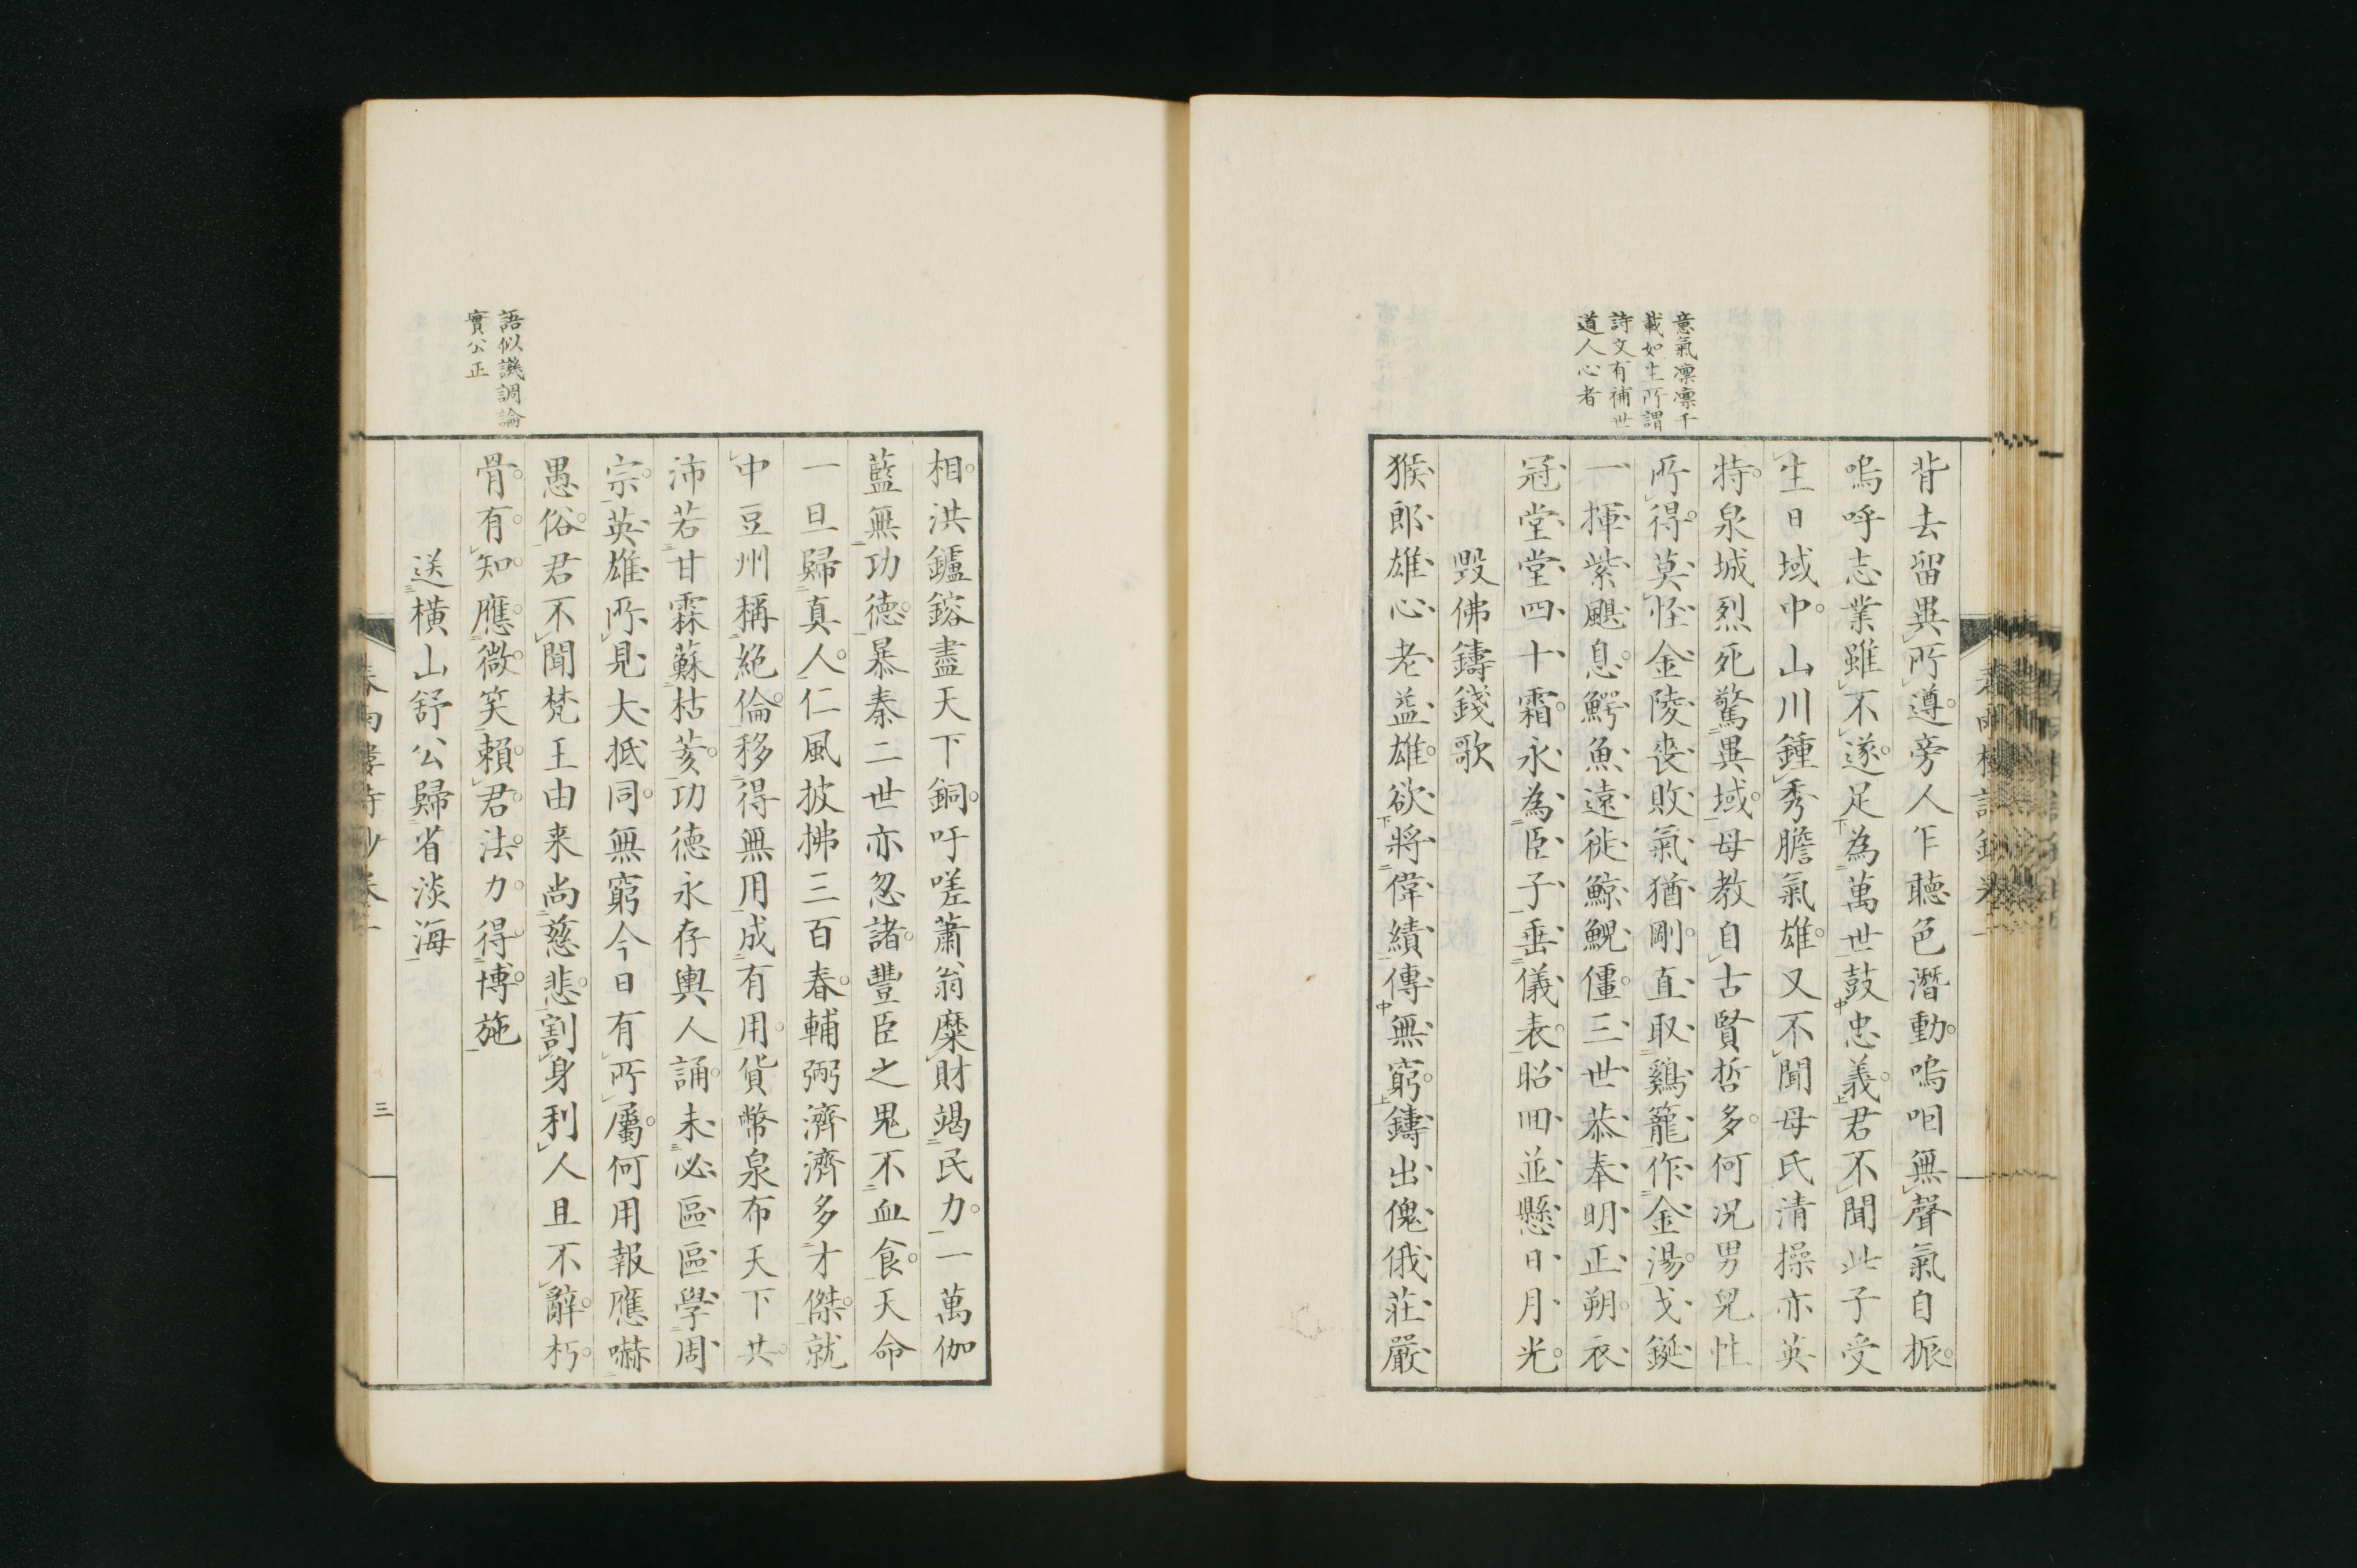 意氣凛凛千
載如生所謂
詩文有補世
道人心者
背去留異所遵旁人乍聽色潛動嗚咽無聲氣自振
嗚呼志業雖不遂足為萬世鼓忠義君不聞此子受
生日域中山川鍾秀膽氣雄又不聞母氏清操亦英
特泉城烈死驚異域母教自古賢哲多何況男兒性
所得莫怪金陵喪敗氣猶剛直取鷄籠作金湯戈鋋
一揮紫颶息鰐魚遠徙鯨鯢僵三世恭奉明正朔衣
冠堂堂四十霜永為臣子垂儀表昭回並懸日月光
毀佛鑄錢歌
猴郎雄心老益雄欲將偉績傳無窮鑄出傀俄莊嚴
語似譏調論
實公正
相洪鑪鎔盡天下銅吁嗟蕭翁糜財竭民力一萬伽
藍無功德暴秦二世亦忽諸豐臣之鬼不血食天命
一旦歸真人仁風披拂三百春輔弼濟濟多才傑就
中豆州稱絕倫移得無用成有用貨幣泉布天下共
沛若甘霖蘇枯荄功德永存輿人誦未必區區學周
宗英雄所見大抵同無窮今日有所屬何用報應嚇
愚俗君不聞梵王由来尚慈悲割身利人且不辭朽
骨有知應微笑賴君法力得博施
送橫山舒公歸省淡海
三